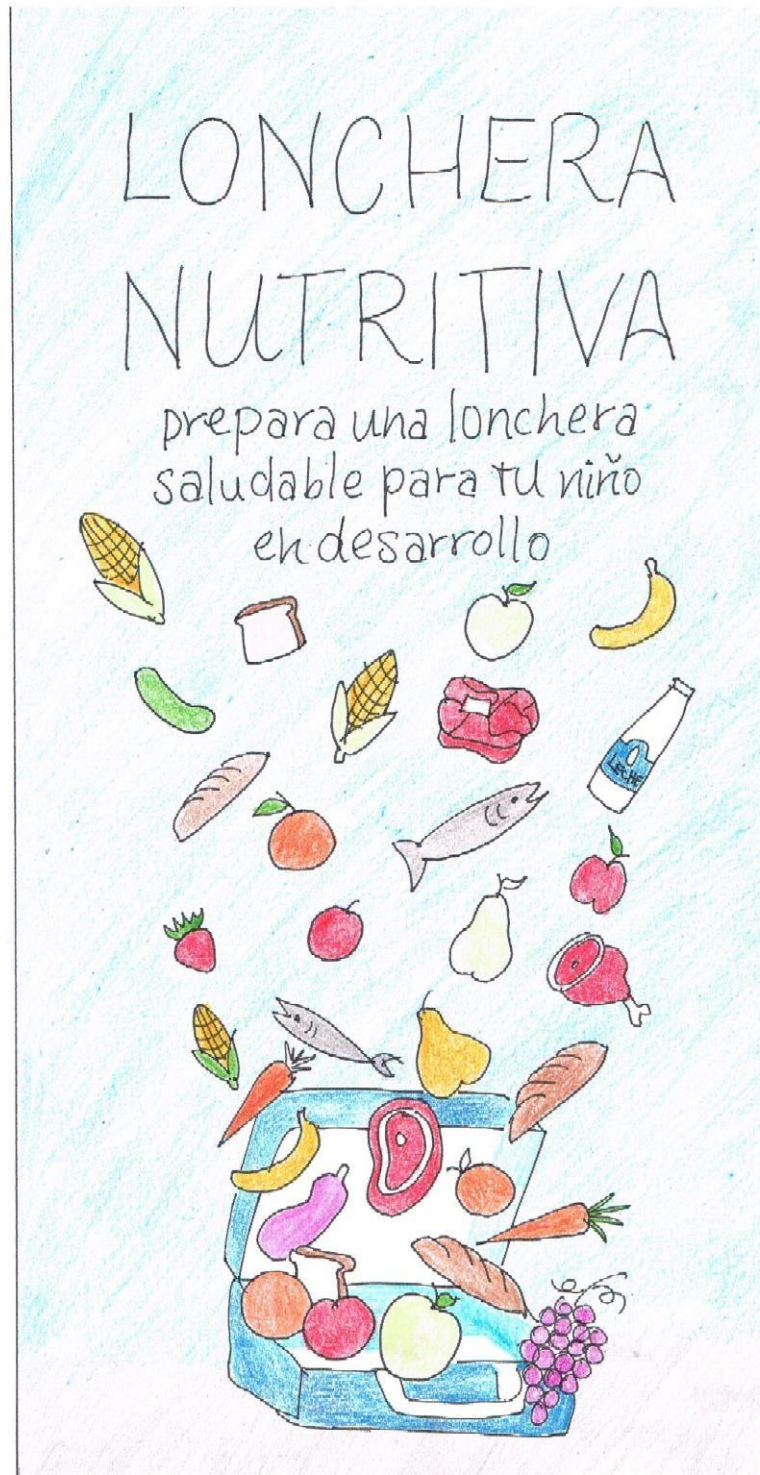 LONCHERA
NUTRITIVA
prepara una lonchera
saludable para tu niño
en desarrollo
LECHE